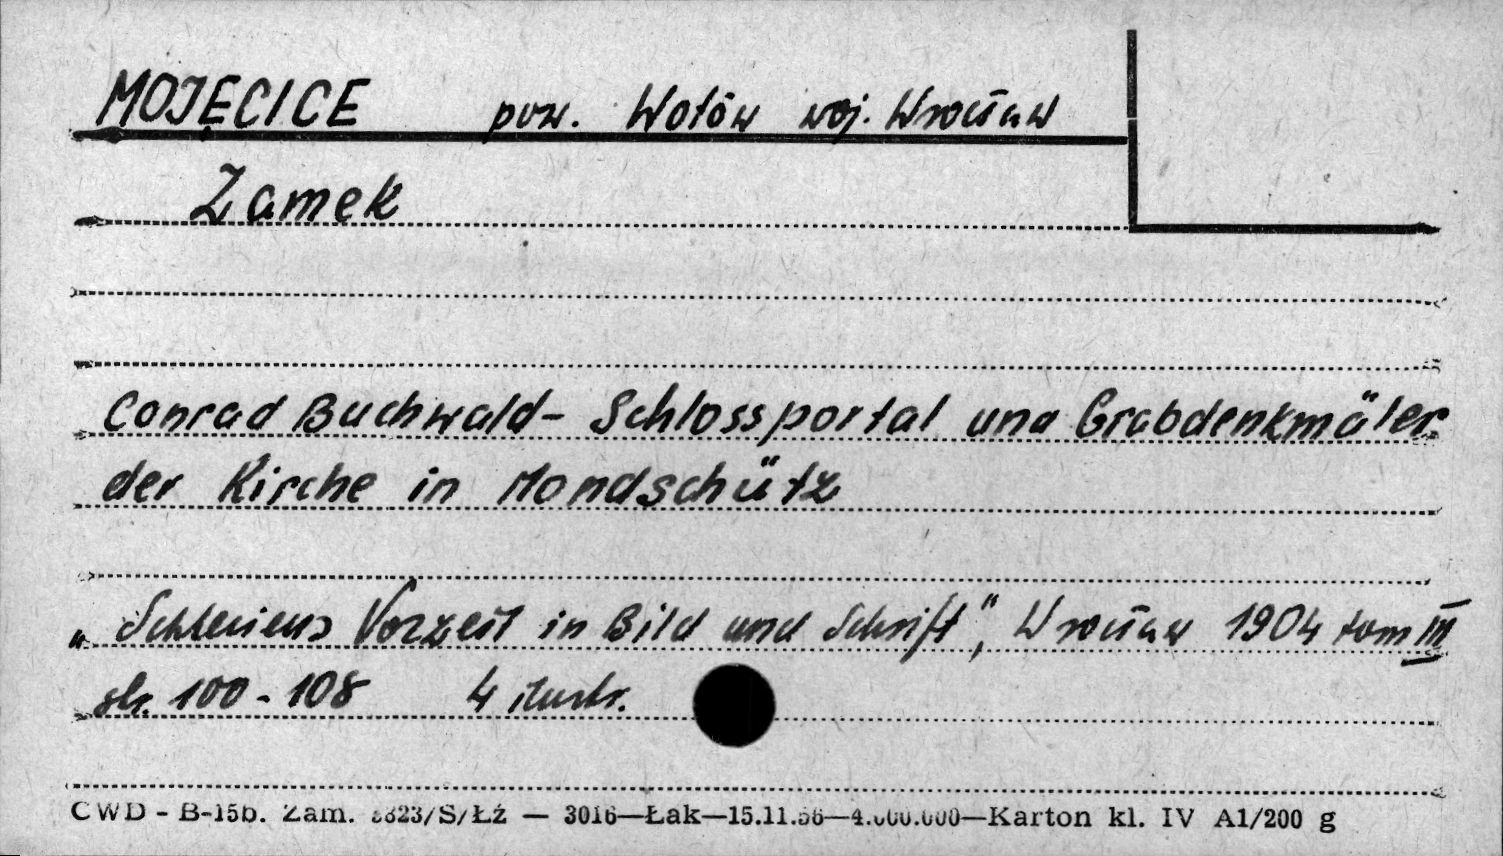 MOJĘCICE pow. Wołów woj. Wrocław
Zamek
Conrad Buchwald - Schlossportal und Grabdenkmäler
der Kirche in Mondschütz
„Schlesiens Vorzeit in Bild und Schrift", Wrocław 1904 tom III
str. 100-108 4 ilustr.
CWD - B-15b. Zam. 8823/S/Łź — 3016—Łak—15.11.56—4.000.000—Karton kl. IV A1/200 g